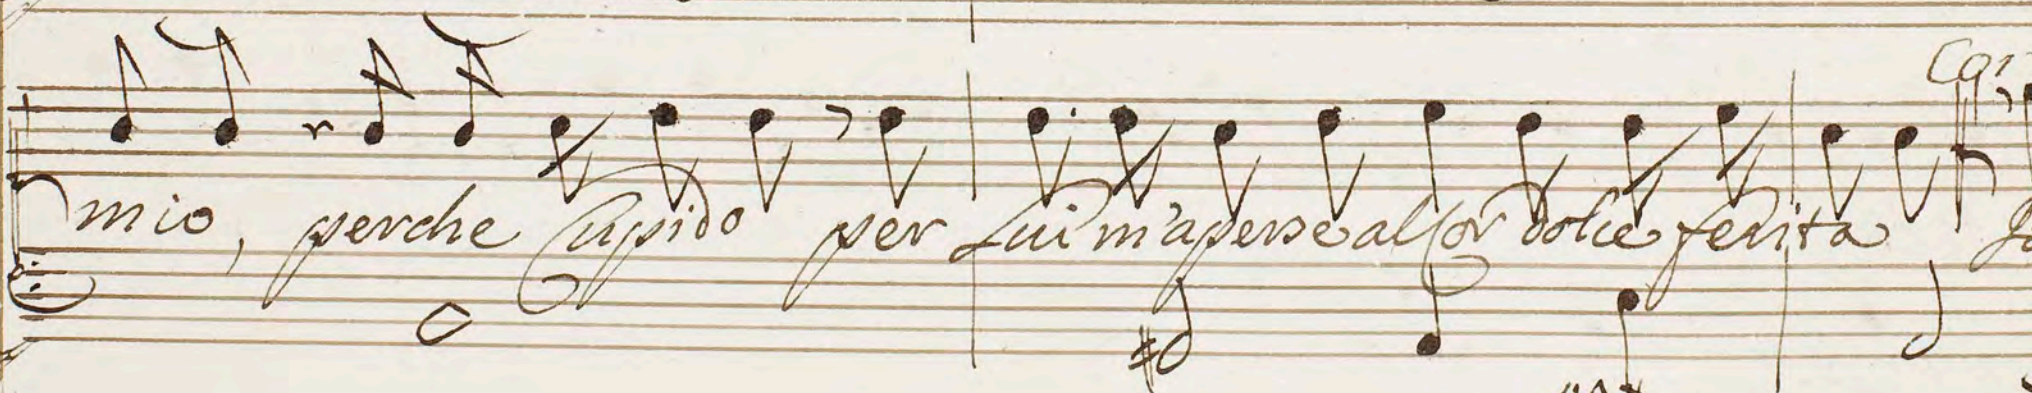 mio, perche Cupido per Lui m'aperse al Cor dolce ferita